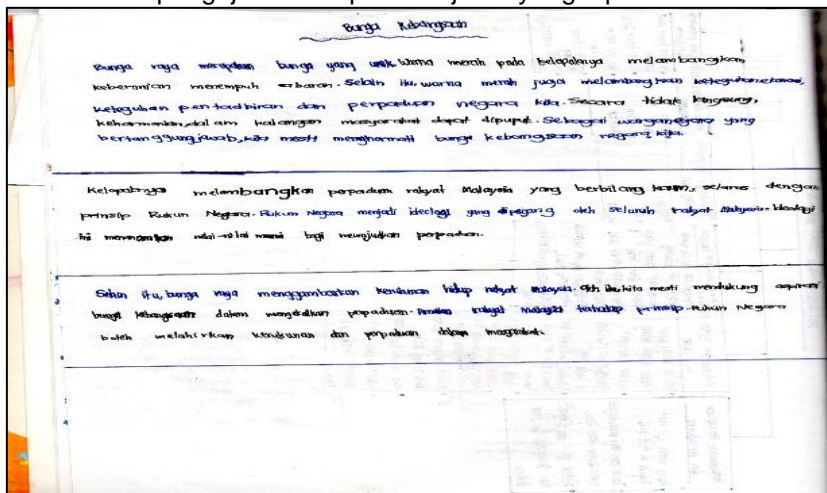 Bunga Kebangsaan
Bunga raya merupakan bunga yang unik. Warna merah pada kelopaknya melambangkan
keberanian menempuh cabaran. Selain itu, warna merah juga melambangkan keteguhan ekonomi,
keteguhan pentadbiran dan perpaduan negara kita. Secara tidak langsung,
keharmonian dalam kalangan masyarakat dapat dipupuk. Sebagai warganegara yang
bertanggungjawab, kita mesti menghormati bunga kebangsaan negara kita.
Kelopaknya melambangkan perpaduan rakyat Malaysia yang berbilang kaum, selaras dengan
prinsip Rukun Negara. Rukun Negara menjadi ideologi yang dipegang oleh seluruh rakyat Malaysia. Ideologi
ini menanamkan nilai-nilai murni bagi mewujudkan perpaduan.
Selain itu, bunga raya menggambarkan kerukunan hidup rakyat Malaysia. Oleh itu, kita mesti mendukung aspirasi
bunga kebangsaan dalam mengekalkan perpaduan. rakyat Malaysia terhadap prinsip Rukun Negara
boleh melahirkan kerukunan dan perpaduan dalam masyarakat.